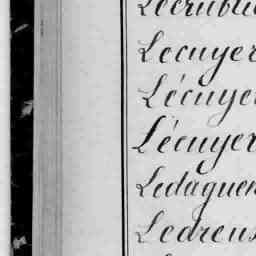 Lecuyer
Lécuyer
Lécuyer
Ledaguen
Ledreus